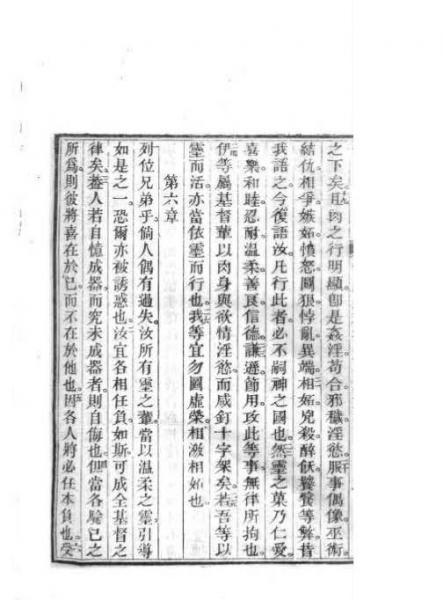 之下矣且肉之行明顯卽是姦淫苟合邪穢淫慾服事偶像巫術
結仇相爭嫉妬憤怒圖狠悖亂異端相妬兇殺醉飫饕餮等弊昔
我語之今復語汝凡行此者必不嗣神之國也然靈之菓乃仁愛
喜樂和睦忍耐溫柔善良信德謙遜節用攻此等事無律所拘也
伊等屬基督輩以肉身與欲情淫慾而咸釘十字架矣若吾等以
靈而活亦當依靈而行也我等宜勿圖虛榮相激相妬也
第六章
列位兄弟乎倘人偶有過失汝所有靈之輩當以溫柔之靈引導
如是之一恐爾亦被誘惑也汝宜各相任負如斯可成全基督之
律矣葢人若自憶成器而究未成器者則自侮也但當各驗己之
所爲則彼將喜在於己而不在於他也因各人將必任本負也受